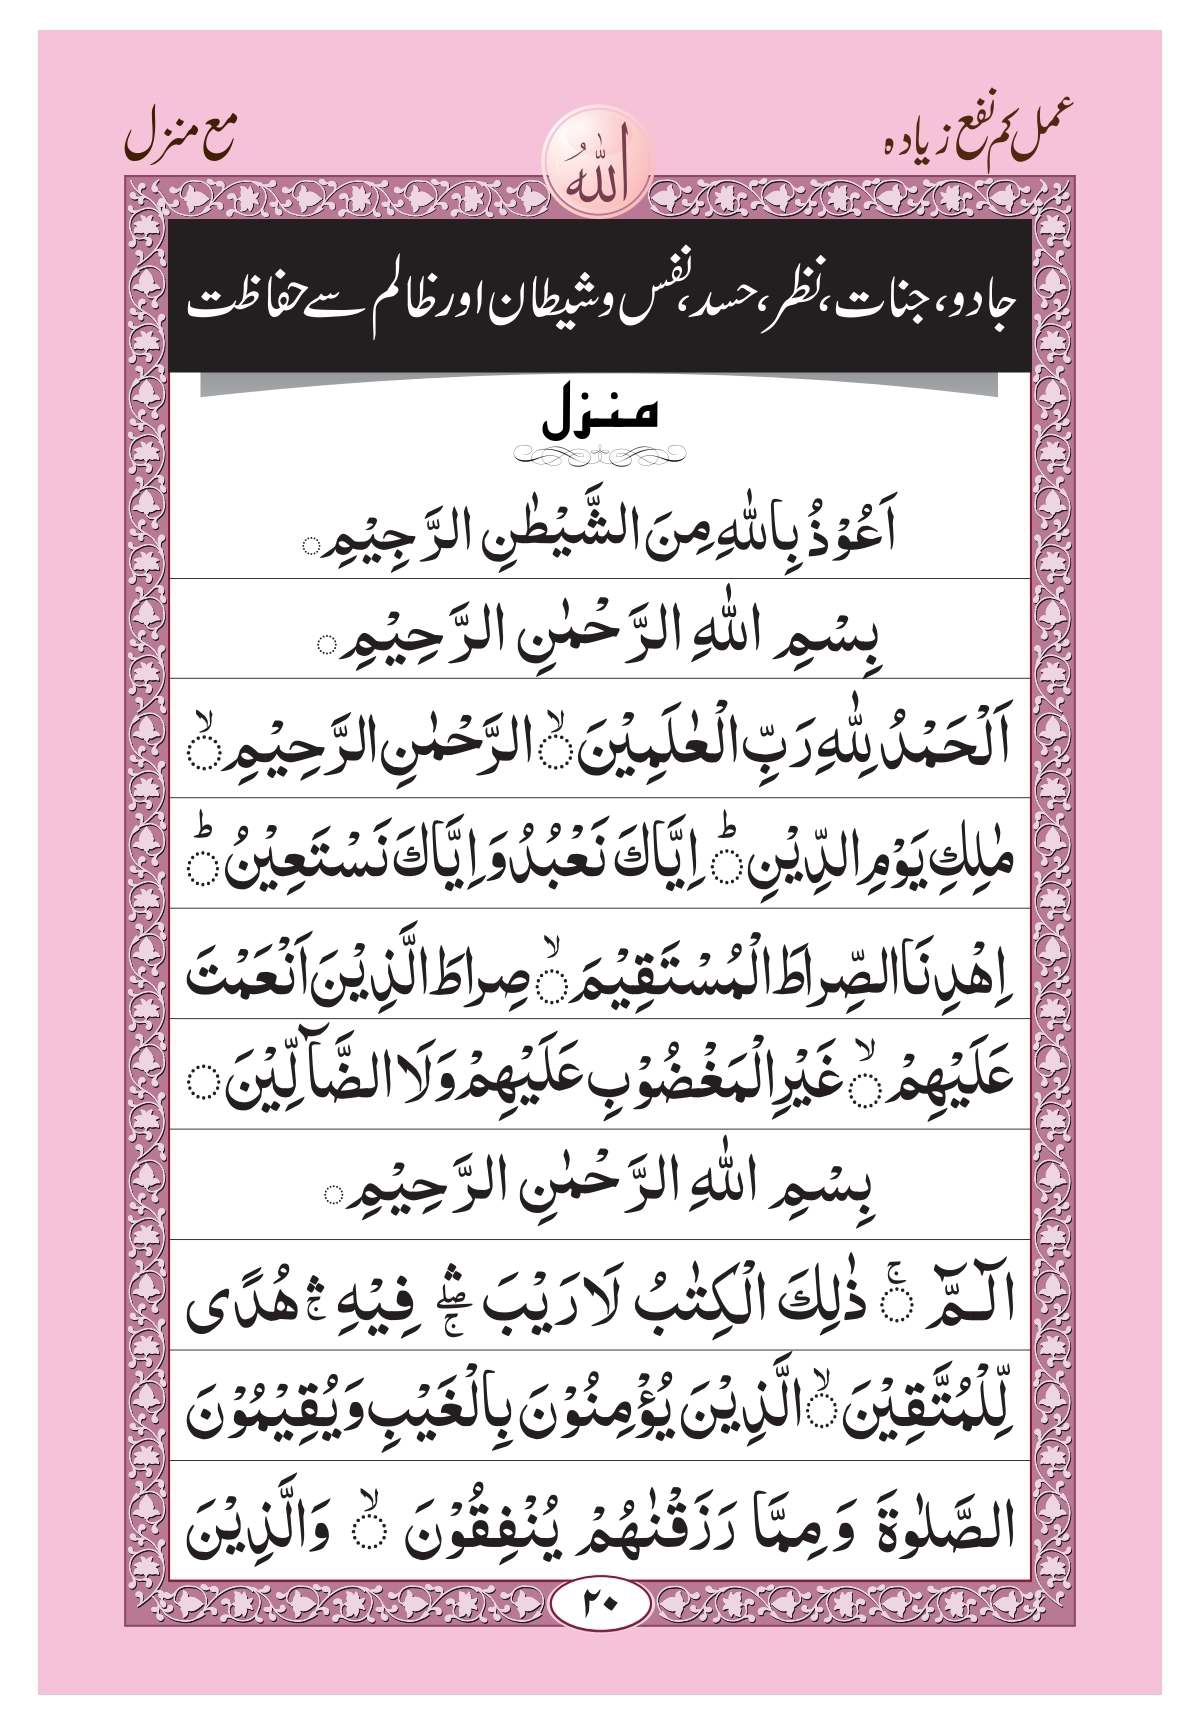 عمل کم نفع زیادہ
مع منزل
الله
جادو، جنات، نظر، حسد، نفس و شیطان اور ظالم سے حفاظت
منزل
اَعُوْذُ بِاللّٰهِ مِنَ الشَّيْطٰنِ الرَّجِيْمِ ۝
بِسْمِ اللّٰهِ الرَّحْمٰنِ الرَّحِيْمِ ۝
اَلْحَمْدُ لِلّٰهِ رَبِّ الْعٰلَمِيْنَ ۝ۙ الرَّحْمٰنِ الرَّحِيْمِ ۝ۙ
مٰلِكِ يَوْمِ الدِّيْنِ ۝ؕ اِيَّاكَ نَعْبُدُ وَ اِيَّاكَ نَسْتَعِيْنُ ۝ؕ
اِهْدِنَا الصِّراطَ الْمُسْتَقِيْمَ ۝ۙ صِراطَ الَّذِيْنَ اَنْعَمْتَ
عَلَيْهِمْ ۝ۙ غَيْرِ الْمَغْضُوْبِ عَلَيْهِمْ وَلَا الضَّآلِّيْنَ ۝
بِسْمِ اللّٰهِ الرَّحْمٰنِ الرَّحِيْمِ ۝
الٓمّٓ ۝ۚ ذٰلِكَ الْكِتٰبُ لَا رَيْبَ ۛۖۚ فِيْهِ ۛۚ هُدًى
لِّلْمُتَّقِيْنَ ۝ۙ الَّذِيْنَ يُؤْمِنُوْنَ بِالْغَيْبِ وَيُقِيْمُوْنَ
الصَّلٰوةَ وَ مِمَّا رَزَقْنٰهُمْ يُنْفِقُوْنَ ۝ۙ وَالَّذِيْنَ
۲۰